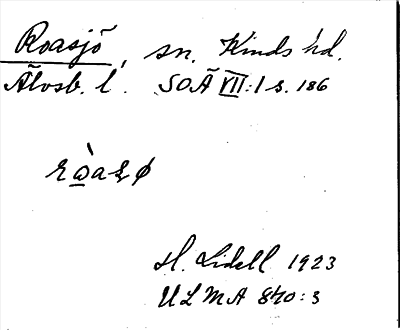 Roasjö, sn. Kinds hd.
Älvsb. l. SOÄ VII:1 s. 186
Hj. Lidell 1923
ULMA 840:3